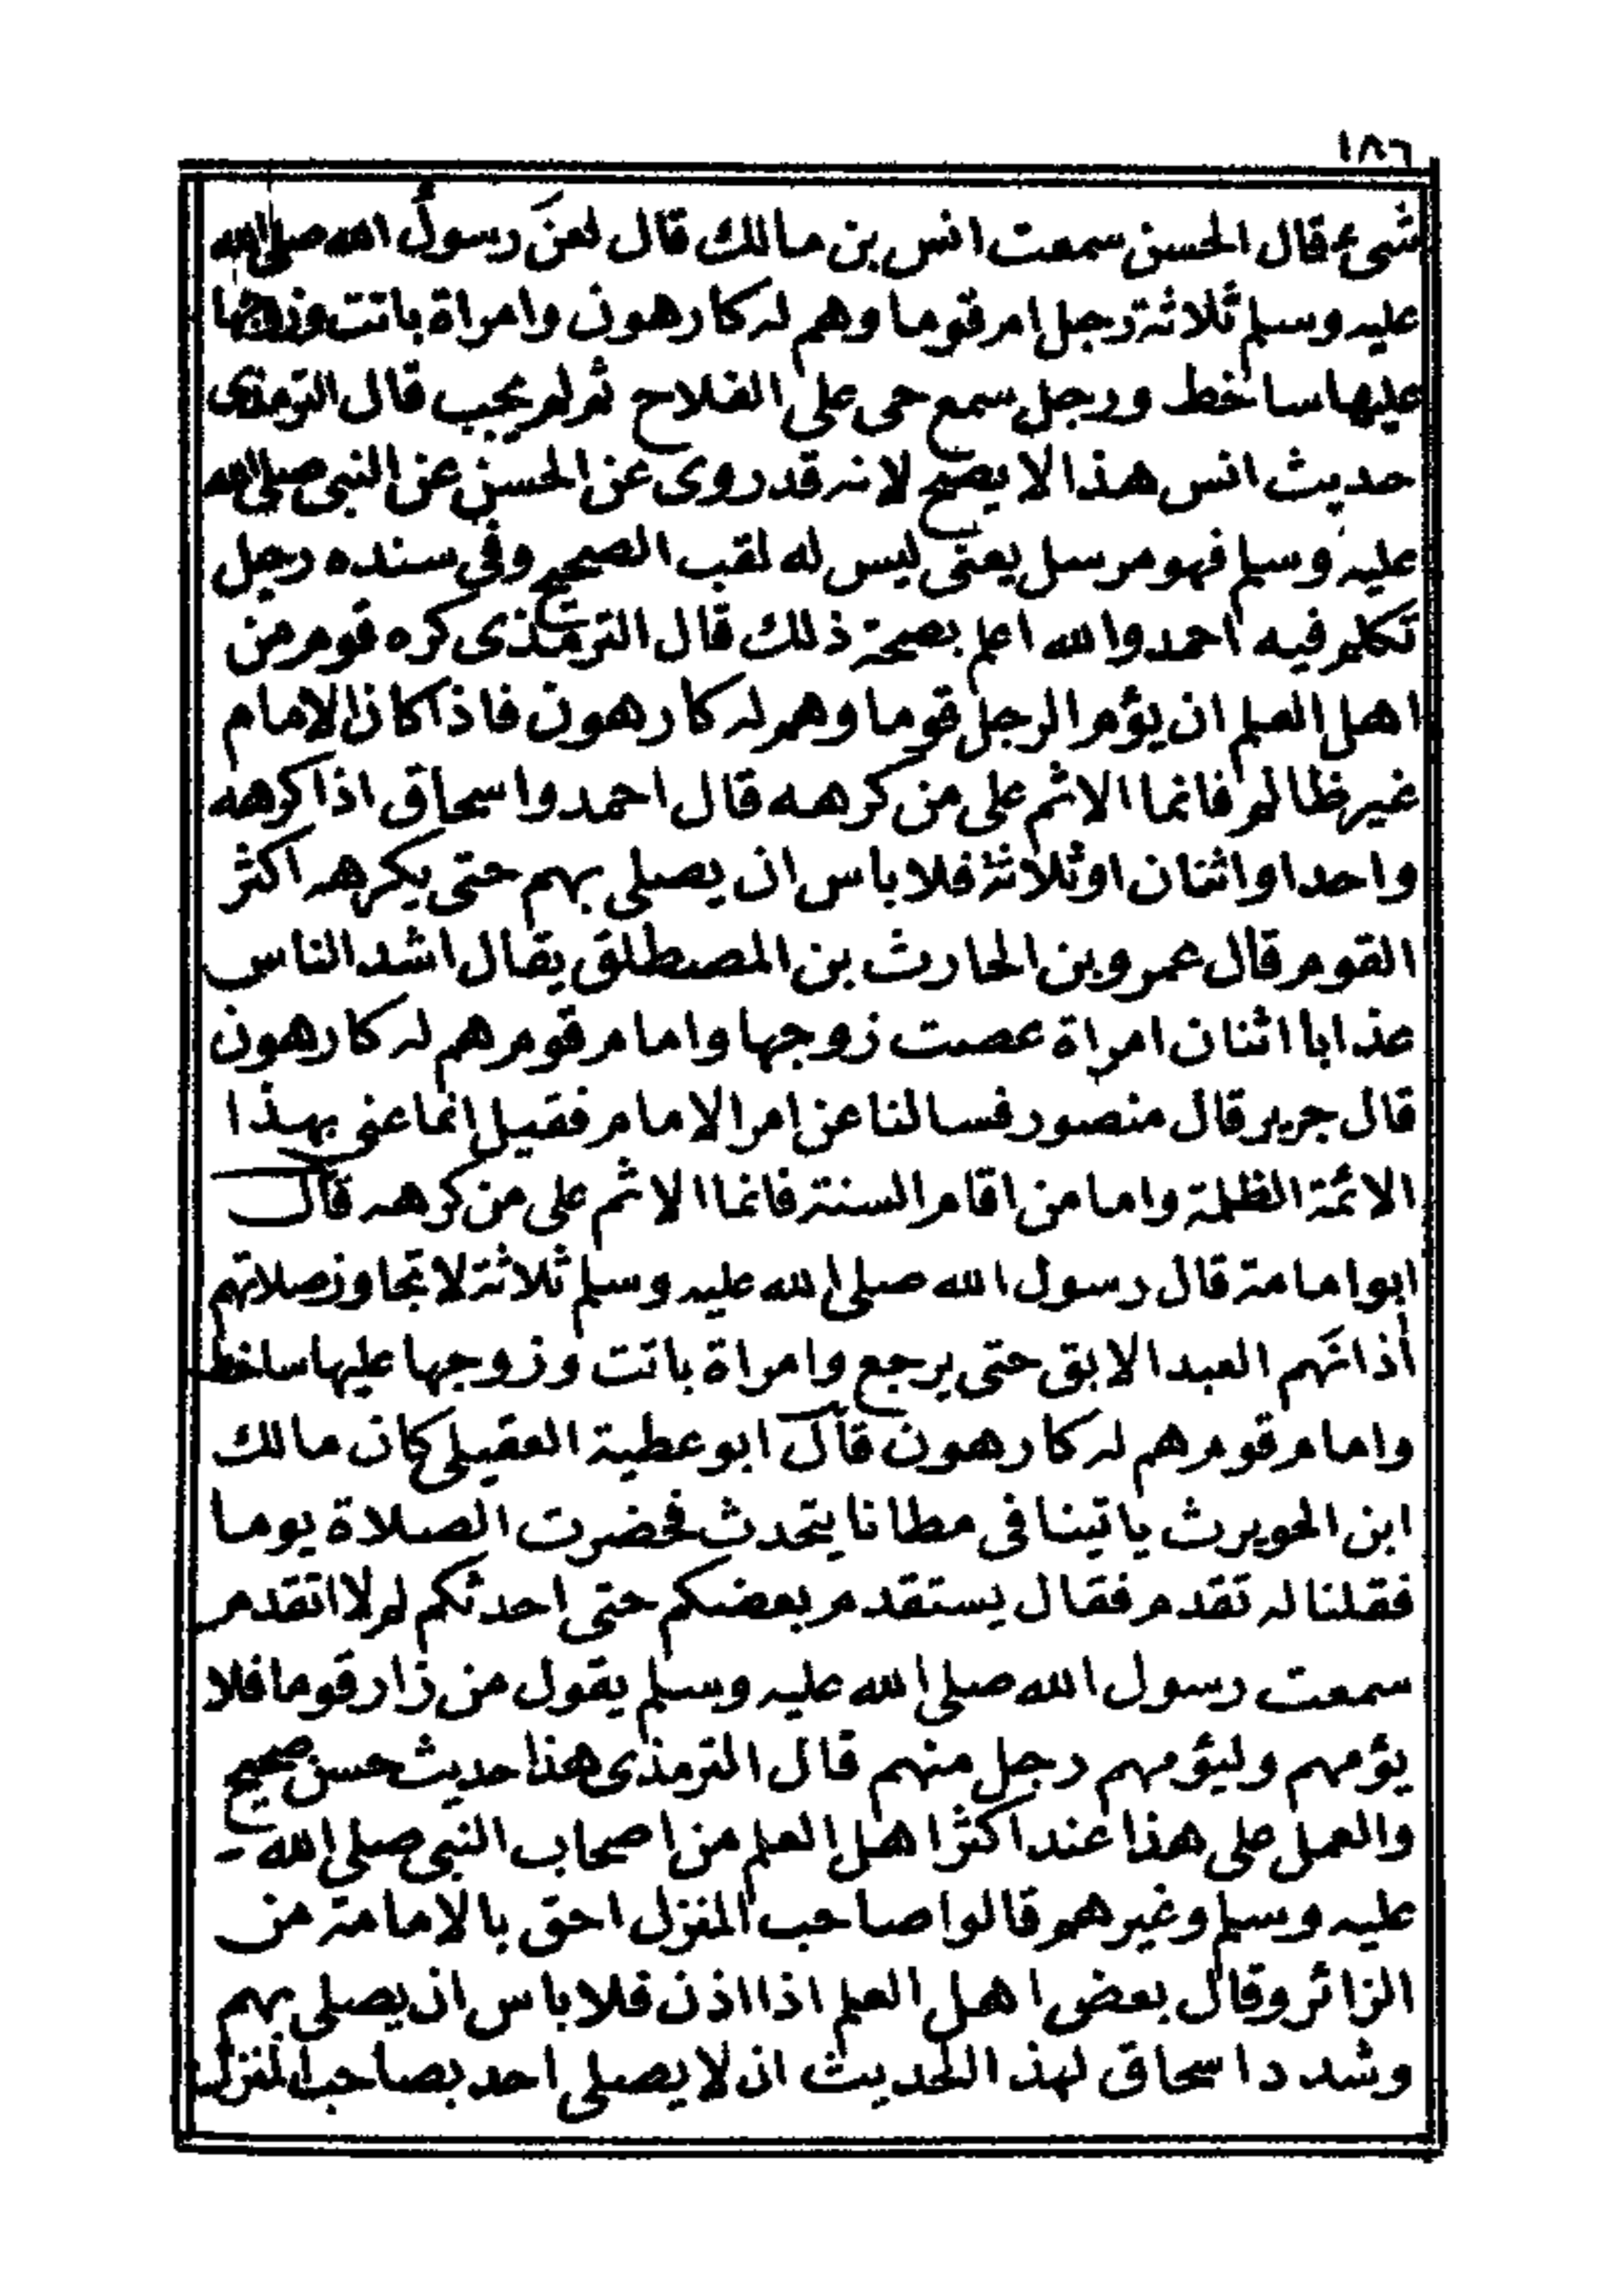 ١٨٦
شىء قال الحسن سمعت انس بن مالك قال لعنَ رسولُ الله صلى الله
عليه وسلم ثلاثة رجل ام قوما وهم له كارهون وامراة باتت وزوجها
عليها ساخط ورجل سمع حى على الفلاح ثم لم يجب قال الترمذى
حديث انس هذا لا يصح لانه قد روى عن الحسن عن النبى صلى الله
عليه وسلم فهو مرسل يعنى ليس له لقب الصحيح وفى سنده رجل
تكلم فيه احمد والله اعلم بصحة ذلك قال الترمذى كره قوم من
اهل العلم ان يؤم الرجل قوما وهم له كارهون فاذا كان الامام
غير ظالم فانما الاثم على من كرهه قال احمد واسحاق اذا كرهه
واحد او اثنان او ثلاثة فلا باس ان يصلى بهم حتى يكرهه اكثر
القوم قال عمرو بن الحارث بن المصطلق يقال اشد الناس
عذابا اثنان امراة عصت زوجها وامام قوم هم له كارهون
قال جرير قال منصور فسالنا عن امر الامام فقيل انما عنى بهذا
الائمة الظلمة واما من اقام السنة فانما الاثم على من كرهه قال
ابو امامة قال رسول الله صلى الله عليه وسلم ثلاثة لا تجاوز صلاتهم
أذانَهم العبد الابق حتى يرجع وامراة باتت وزوجها عليها ساخط
وامام قوم هم له كارهون قال ابو عطية العقيلى كان مالك
ابن الحويرث ياتينا فى مطانا يتحدث فحضرت الصلاة يوما
فقلنا له تقدم فقال يستقدم بعضكم حتى احدثكم لم لا اتقدم
سمعت رسول الله صلى الله عليه وسلم يقول من زار قوما فلا
يؤمهم وليؤمهم رجل منهم قال الترمذى هذا حديث حسن صحيح
والعمل على هذا عند اكثر اهل العلم من اصحاب النبى صلى الله -
عليه وسلم وغيرهم قالوا صاحب المنزل احق بالامامة من
الزائر وقال بعض اهل العلم اذا اذن فلا باس ان يصلى بهم
وشدد اسحاق لهذ الحديث ان لا يصلى احد بصاحب المنزل